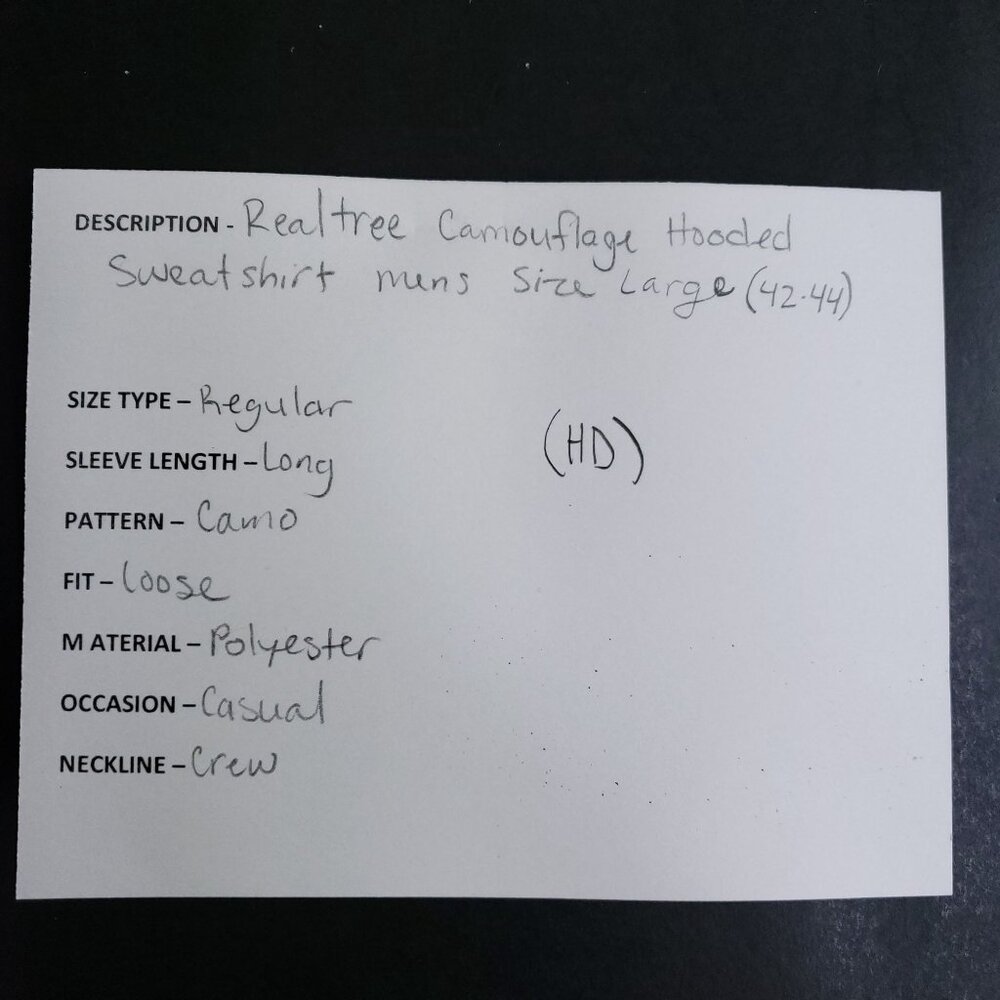 DESCRIPTION - Realtree Camouflage Hooded
Sweatshirt mens Size Large (42-44)
SIZE TYPE – Regular
(HD)
SLEEVE LENGTH – Long
PATTERN – Camo
FIT – Loose
M ATERIAL – Polyester
OCCASION – Casual
NECKLINE – Crew